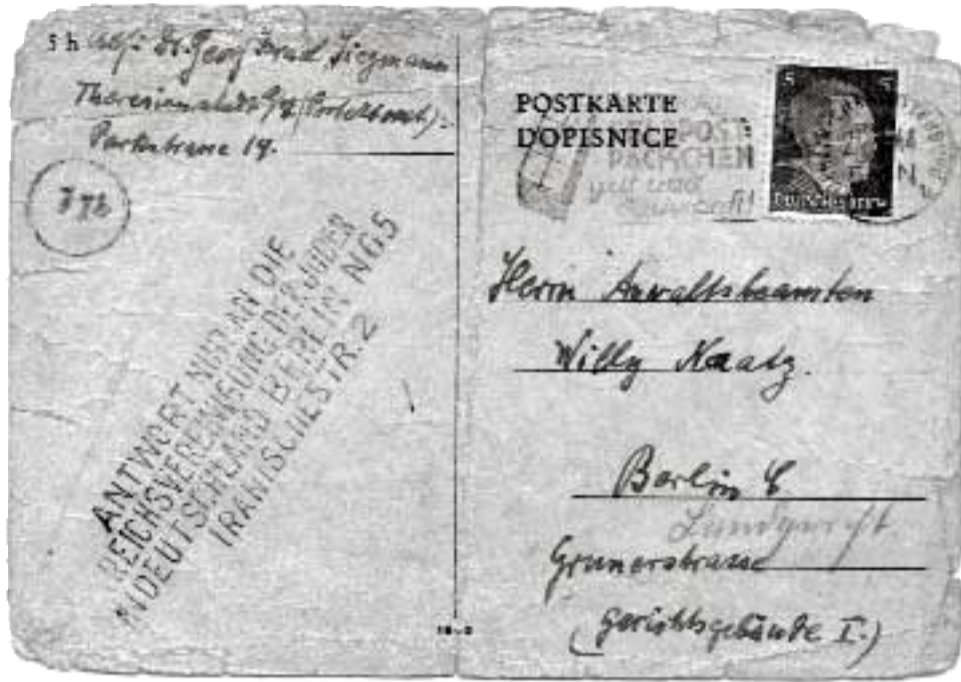 5 h
Abs: Dr. Georg Israel Siegmann
Theresienstadt
Parkstrasse 14.
ANTWORT NUR AN DIE
REICHSVEREINIGUNG DER JUDEN
IN DEUTSCHLAND BERLIN N65
IRANISCHE STR. 2
POSTKARTE
DOPISNICE
POST
PÄCKCHEN
gut und
5 5
DEUTSCHES REICH
Herrn Anwaltsbeamten
Willy Naatz.
Berlin C
Landgericht
Grunerstrasse
(Gerichtsgebäude I.)